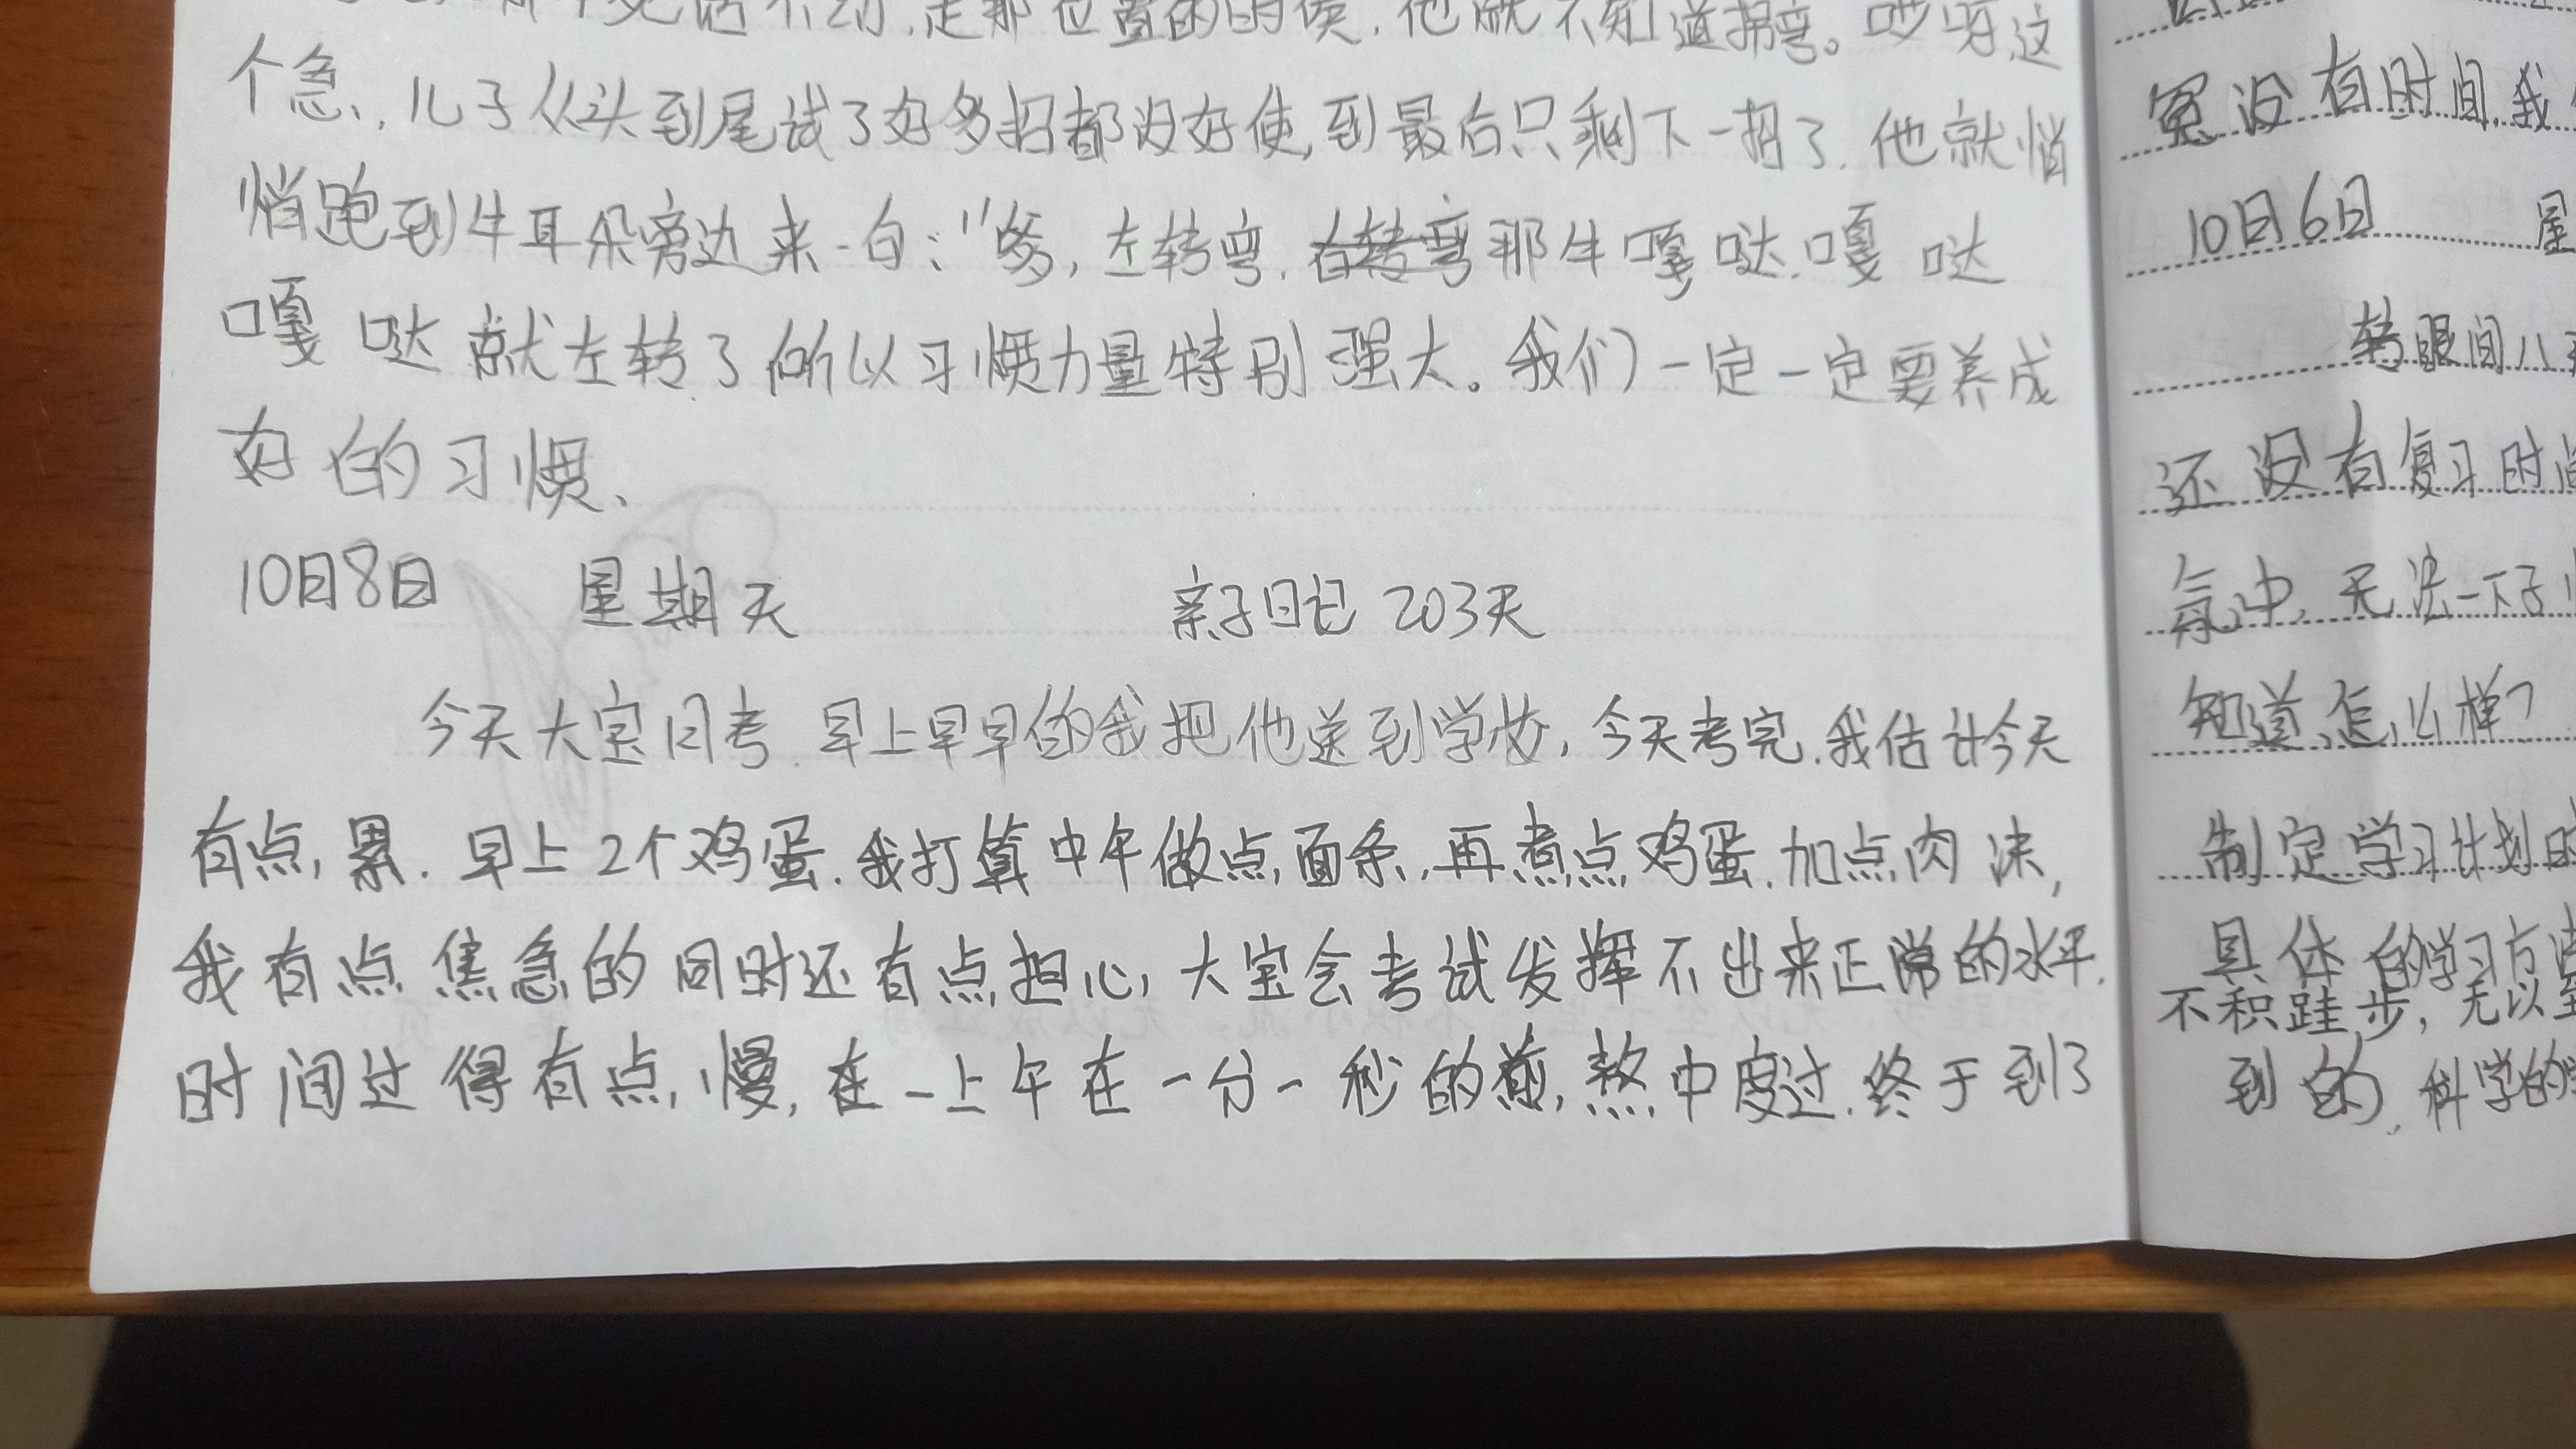 走那位置的时候,他就不知道拐弯。哎呀这
个急,儿子从头到尾试了好多招都没好使,到最后只剩下一招了.他就悄
悄跑到牛耳朵旁边来一句:"爹,左转弯,右转弯那牛嘎哒.嘎哒
嘎哒就左转了所以习惯力量特别强大。我们一定一定要养成
好的习惯、
10日8日 星期天 亲子日记 203天
今天大宝月考.早上早早的我把他送到学校,今天考完.我估计今天
有点累.早上2个鸡蛋.我打算中午做点面条,再煮点鸡蛋.加点肉沫,
我有点焦急的同时还有点担心,大宝会考试发挥不出来正常的水平.
时间过得有点慢,在一上午在一分一秒的煎熬中度过.终于到了
没有时间,我
10日6日 星
转眼间八
还没有复习时间
气中,无法一下子
知道怎么样?
制定学习计划时
具体的学习方法
不积跬步,无以至
到的.科学的学